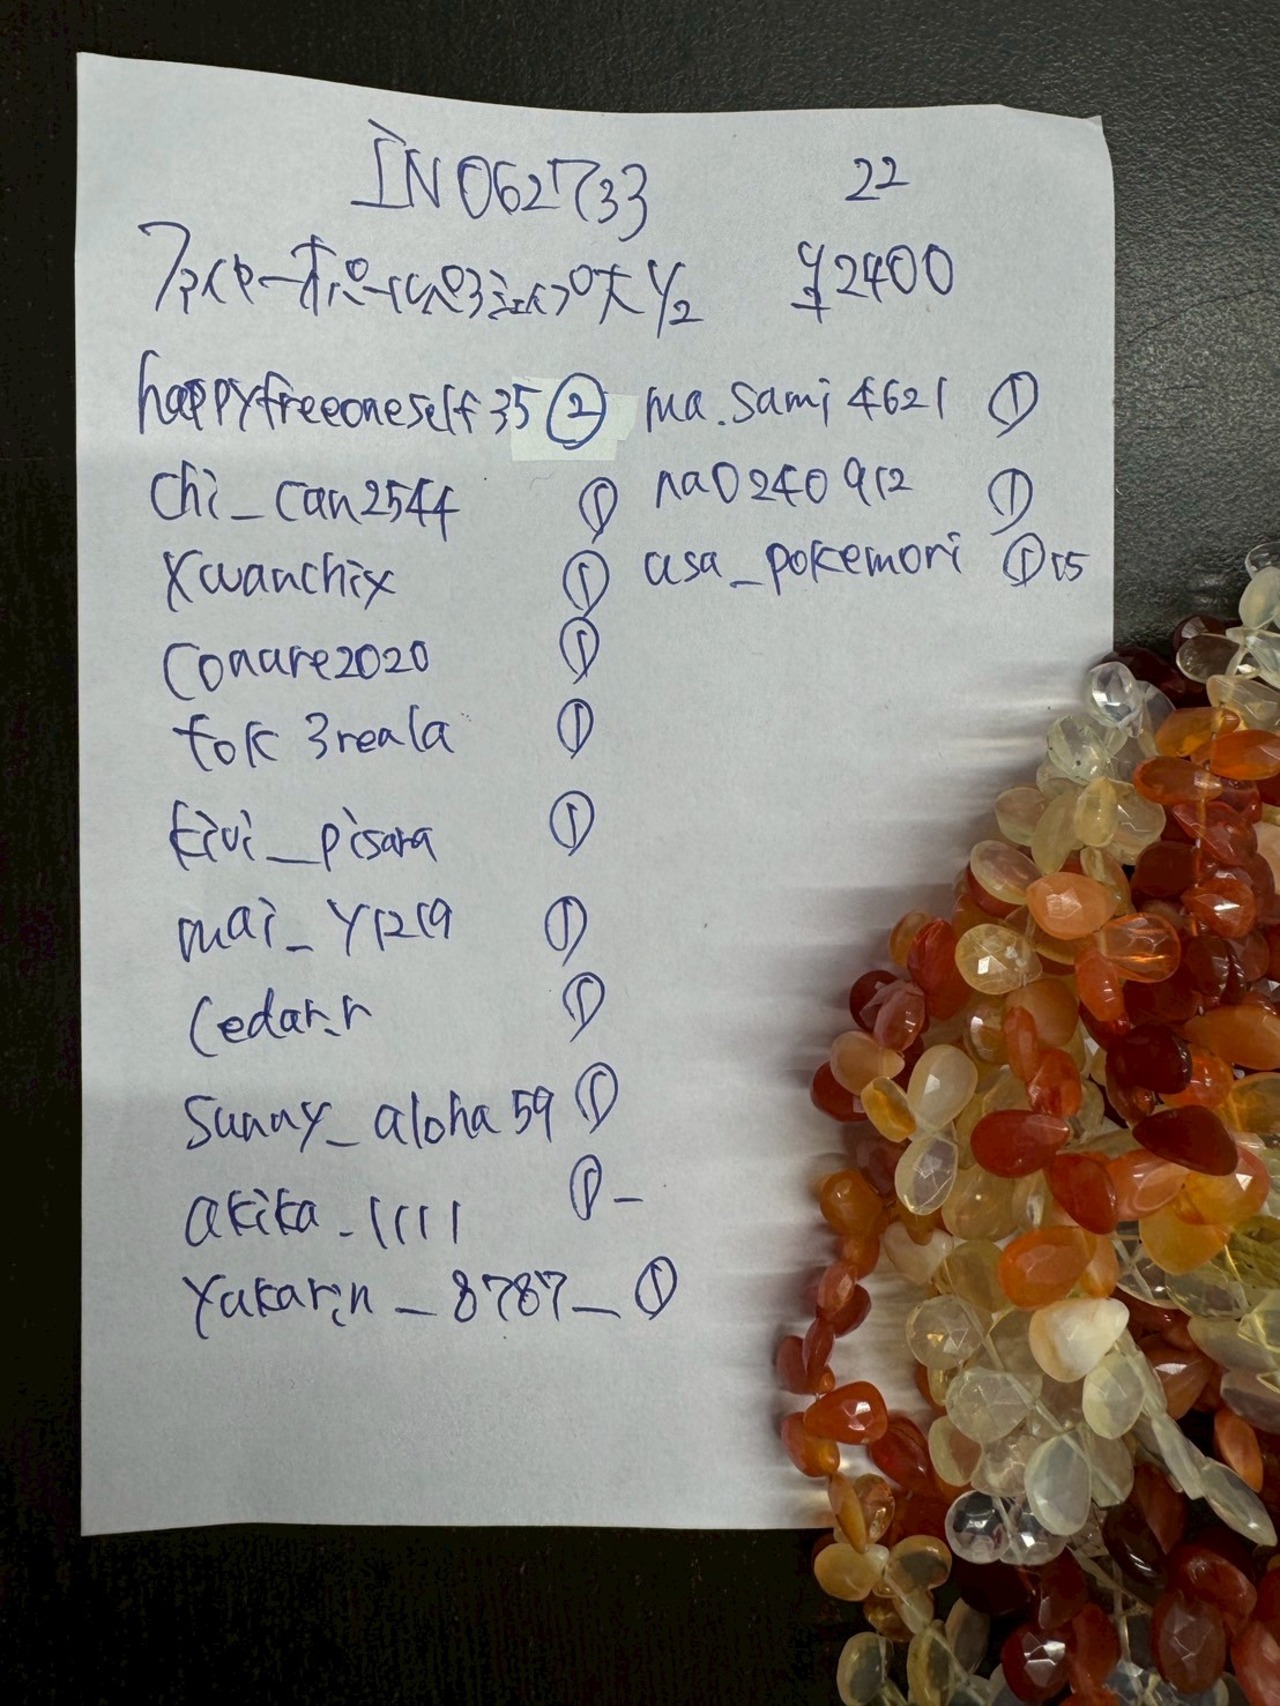 IN062733 22
ファイヤーオパール ¥2400
happyfreeoneself35 ②
chi_can2544 ①
xwanchix ①
conare2020 ①
tok3reala ①
kivi_pisara ①
mai_y1219 ①
cedar.r ①
sunny_aloha59 ①
akika_1111 ① –
yukarin_8787_ ①
ma.sami4621 ①
na0240912 ①
asa_pokemori ① 15